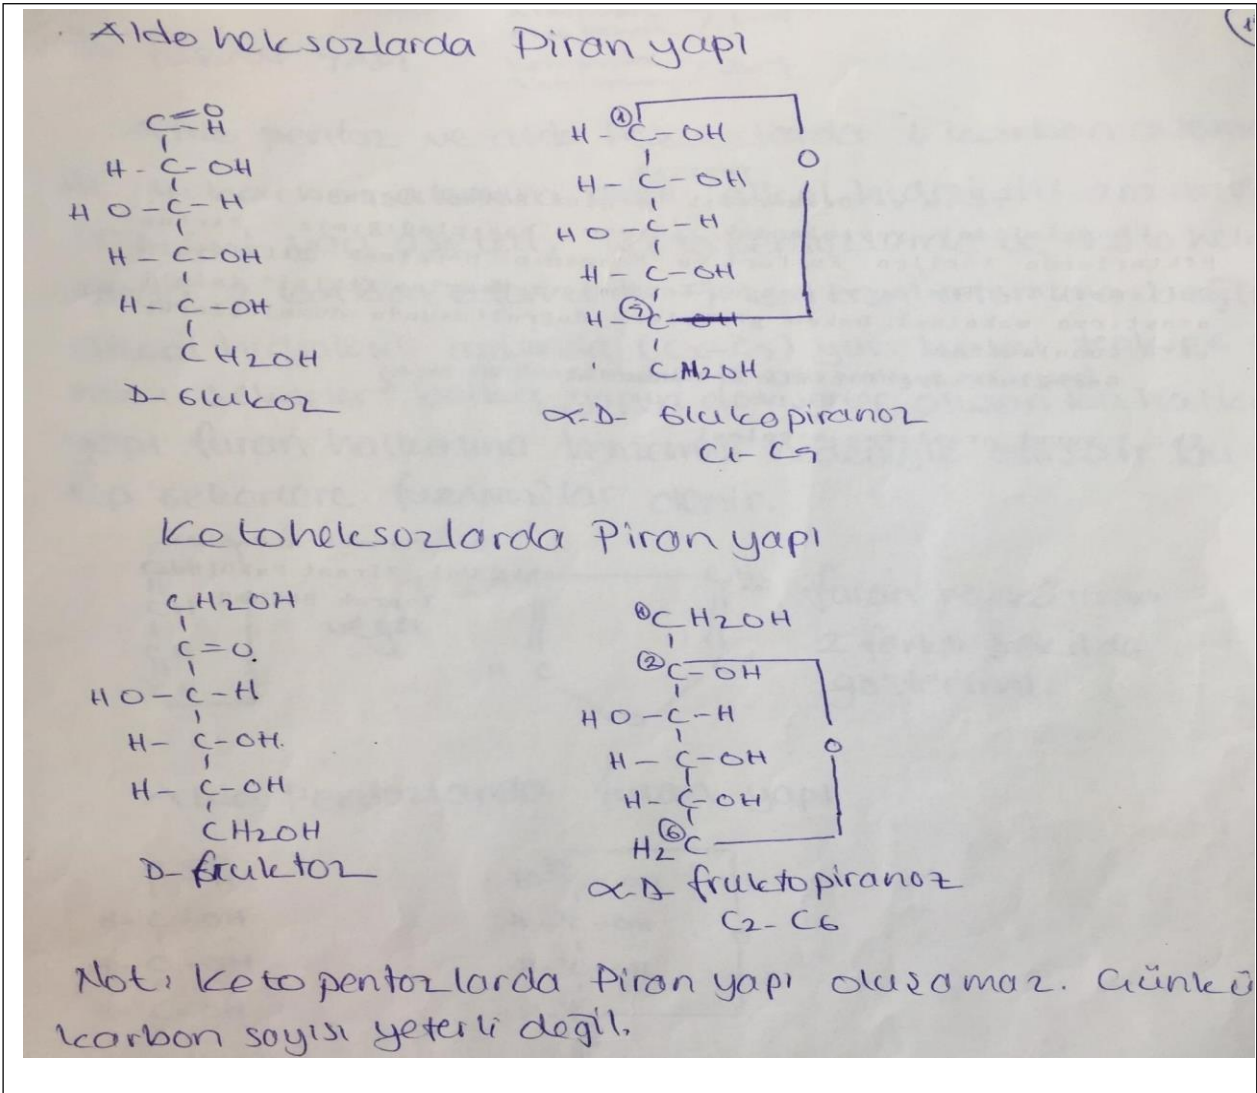 Aldo heksozlarda Piran yapı
C=O
H
H-C-OH
HO-C-H
H-C-OH
H-C-OH
CH2OH
D-Glukoz
① H C-OH
O
H-C-OH
HO-C-H
H-C-OH
H-⑤C-OH
CH2OH
α-D-Glukopiranoz
C1-C5
Ketoheksozlarda Piran yapı
CH2OH
C=O
HO-C-H
H-C-OH
H-C-OH
CH2OH
D-fruktoz
①CH2OH
②C-OH
HO-C-H
H-C-OH
O
H-C-OH
H2⑥C
α-D-fruktopiranoz
C2-C6
Not: Keto pentozlarda Piran yapı oluşamaz. Çünkü
karbon sayısı yeterli değil.